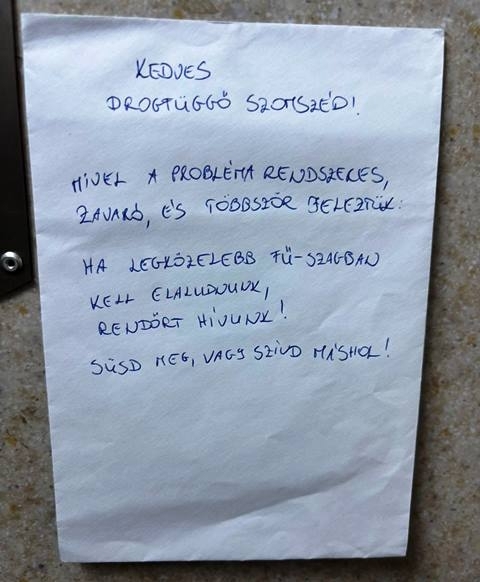 KEDVES
DROGFÜGGŐ SZOMSZÉD!
MIVEL A PROBLÉMA RENDSZERES,
ZAVARÓ, ÉS TÖBBSZÖR JELEZTÜK:
HA LEGKÖZELEBB FŰ-SZAGBAN
KELL ELALUDNUNK,
RENDŐRT HÍVUNK!
SÜSD MEG, VAGY SZÍVD MÁSHOL!